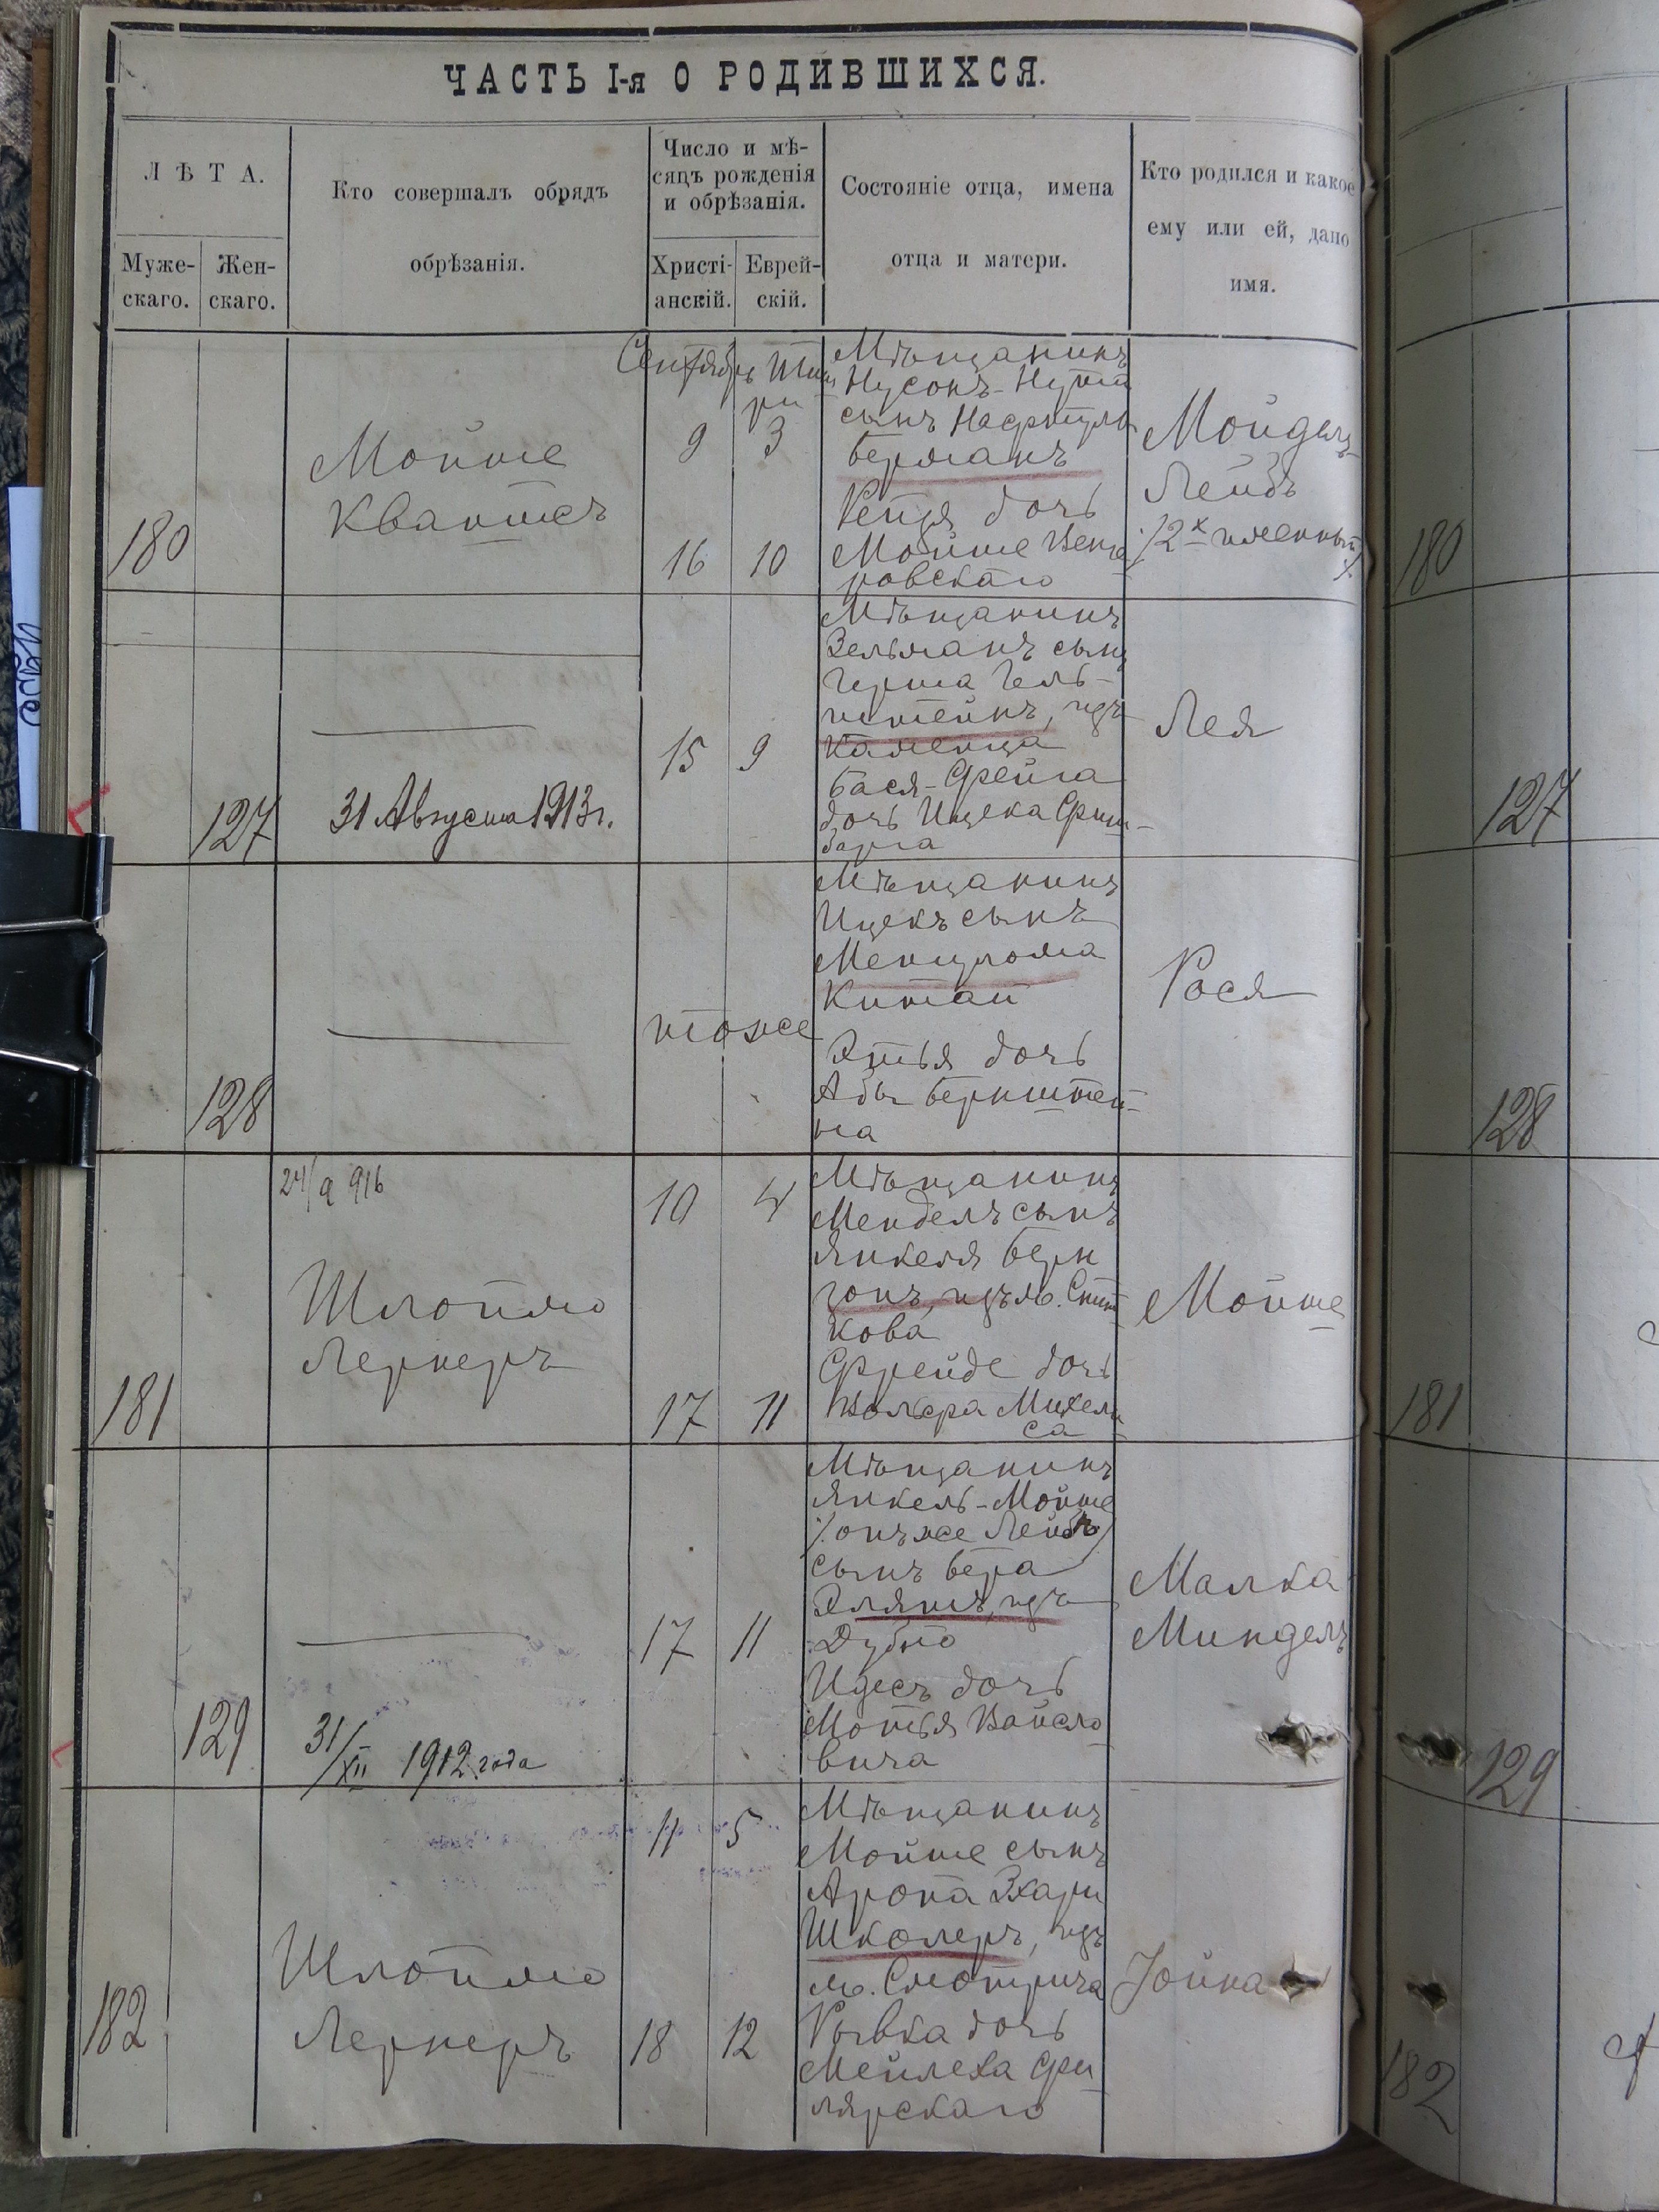 ЧАСТЬ I-я О РОДИВШИХСЯ.
ЛѢТА.
Муже-
скаго.
Жен-
скаго.
Кто совершалъ обрядъ
обрѣзанія.
Число и мѣ-
сяцъ рожденія
и обрѣзанія.
Христі-
анскій.
Еврей-
скій.
Состояніе отца, имена
отца и матери.
Кто родился и какое
ему или ей, дано
имя.
180
Мойше
Квантеъ
Сентябрь
9
16
Тиш
ри
3
10
Мѣщанинъ
Нусонъ-Нута
сынъ Нафтулы
Берманъ
дочь
Мойше
ровскаго
Лейбъ
/2х именный/
180
127
31 Августа 1913 г.
15
9
Мѣщанинъ
Зельманъ сынъ
Герша Гель-
штейнъ, изъ
Каменца
Бася-Фрейга
дочь Ицека Фиш-
барга
Лея
127
128
тоже
Мѣщанинъ
Ицекъ сынъ
Менцулома
Китай
Этья дочь
Абы Бернштей-
на
Рося
128
24/9 916
181
Шлоймо
Лернеръ
10
17
4
11
Мѣщанинъ
Мендель сынъ
Янкеля Берн
зонъ, изъ м. Спит
кова
Фрейде дочь
Михели
са
Мойше
181
129
31/XII 1912 года
17
11
Мѣщанинъ
Янкель-Мойше
/онъ же Лейбъ/
сынъ Бера
изъ
Дубно
Идесъ дочь
Мотья Вайсло
вича
Малка
Миндель
129
182
Шлоймо
Лернеръ
11
18
5
12
Мѣщанинъ
Мойше сынъ
Арона Зхари
Школеръ, изъ
м. Смотрича
Рывка дочь
Мейлеха Фи
лярскаго
Іойна
182